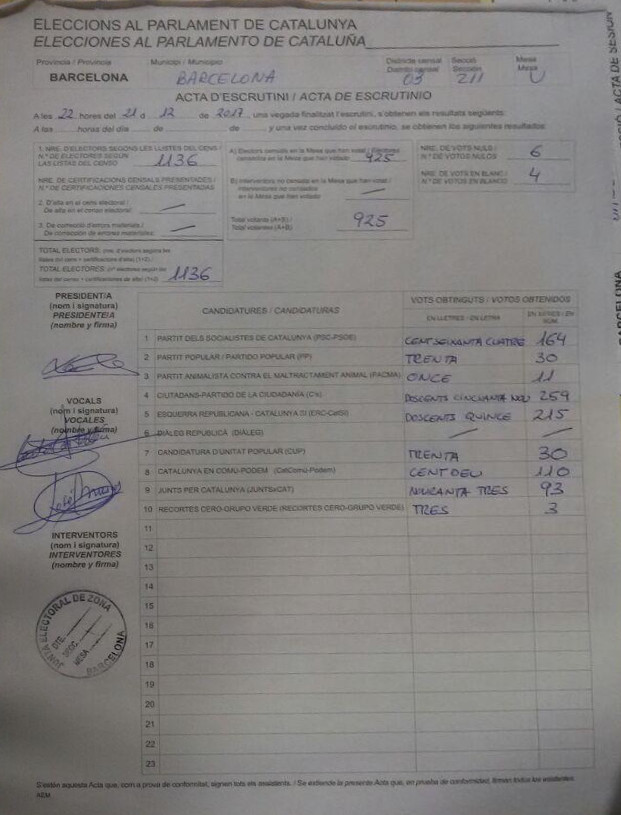 ELECCIONS AL PARLAMENT DE CATALUNYA
ELECCIONES AL PARLAMENTO DE CATALUÑA
Província / Provincia Municipi / Municipio Districte censal Secció Mesa
Distrito censal Sección Mesa
BARCELONA BARCELONA 03 211 U
ACTA D'ESCRUTINI / ACTA DE ESCRUTINIO
A les 22 hores del 21 d 12 de 2017, una vegada finalitzat l'escrutini, s'obtenen els resultats següents:
A las horas del día de de y una vez concluido el escrutinio, se obtienen los siguientes resultados:
1. NRE. D'ELECTORS SEGONS LES LLISTES DEL CENS /
N.º DE ELECTORES SEGÚN
LAS LISTAS DEL CENSO 1136
NRE. DE CERTIFICACIONS CENSALS PRESENTADES /
N.º DE CERTIFICACIONES CENSALES PRESENTADAS
2. D'alta en el cens electoral /
De alta en el censo electoral —
3. De correcció d'errors materials /
De corrección de errores materiales —
TOTAL ELECTORS
TOTAL ELECTORES 1136
A) Electors censats en la Mesa que han votat / Electores
censados en la Mesa que han votado 925
B) Interventors no censats en la Mesa que han votat /
Interventores no censados
en la Mesa que han votado —
Total votants (A+B) /
Total votantes (A+B) 925
NRE. DE VOTS NULS /
N.º DE VOTOS NULOS 6
NRE. DE VOTS EN BLANC /
N.º DE VOTOS EN BLANCO 4
PRESIDENT/A
(nom i signatura)
PRESIDENTE/A
(nombre y firma)
VOCALS
(nom i signatura)
VOCALES
(nombre y firma)
INTERVENTORS
(nom i signatura)
INTERVENTORES
(nombre y firma)
JUNTA ELECTORAL DE ZONA
DTE.
SECC.
MESA
BARCELONA
CANDIDATURES / CANDIDATURAS VOTS OBTINGUTS / VOTOS OBTENIDOS
EN LLETRES - EN LETRA EN XIFRES / EN NÚM.
1 PARTIT DELS SOCIALISTES DE CATALUNYA (PSC-PSOE) CENT SEIXANTA CUATRE 164
2 PARTIT POPULAR / PARTIDO POPULAR (PP) TRENTA 30
3 PARTIT ANIMALISTA CONTRA EL MALTRACTAMENT ANIMAL (PACMA) ONCE 11
4 CIUTADANS-PARTIDO DE LA CIUDADANÍA (C's) DOSCENTS CINCUANTA NOU 259
5 ESQUERRA REPUBLICANA - CATALUNYA SÍ (ERC-CatSí) DOSCENTS QUINCE 215
6 DIÀLEG REPUBLICÀ (DIÀLEG) — —
7 CANDIDATURA D'UNITAT POPULAR (CUP) TRENTA 30
8 CATALUNYA EN COMÚ-PODEM (CatComú-Podem) CENT DEU 110
9 JUNTS PER CATALUNYA (JUNTSxCAT) NOURANTA TRES 93
10 RECORTES CERO-GRUPO VERDE (RECORTES CERO-GRUPO VERDE) TRES 3
11
12
13
14
15
16
17
18
19
20
21
22
23
S'estén aquesta Acta que, com a prova de conformitat, signen tots els assistents. / Se extiende la presente Acta que, en prueba de conformidad, firman todos los asistentes.
ACTA DE SESIÓN
BARCELONA